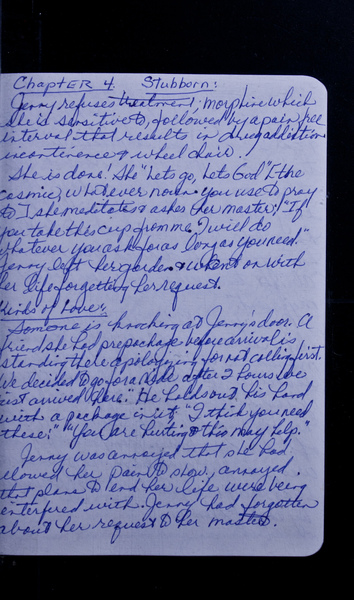 Chapter 4. Stubborn:
Jenny refuses treatment; morphine which
she is sensitive to, followed by a pain free
interval that results in drug addiction
incontinence & wheel chair.
She is done! She "Lets go, Lets God" [the
cosmic, whatever noun you use to pray
to] she meditates & ashes her master; "If
you take this cup from me, I will do
whatever you ask for as long as you need."
Jenny left her garden & went on with
her life forgetting her request.
Birds of Love:
Someone is knocking at Jenny's door. A
friend she had prepackage before arrival is
standing there apologizing for not calling first.
We decided to go for a ride after 2 hours we
just arrived here. He holds out his hand
with a package in it; "I think you need
these;" "You are hurting & this may help."
Jenny was annoyed that she had
allowed her pain to show, annoyed
that plans to end her life were being
enterfered with. Jenny had forgotten
about her request to her master.